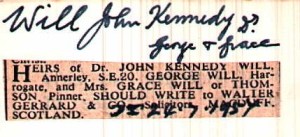 Will John Kennedy Jr
George & Grace
HEIRS of Dr. JOHN KENNEDY WILL,
Annerley, S.E.20. GEORGE WILL, Har-
rogate, and Mrs. GRACE WILL or THOM-
SON Pinner, SHOULD WRITE to WALTER
GERRARD & CO., Solicitors, MACDUFF,
SCOTLAND.
24.7.1957